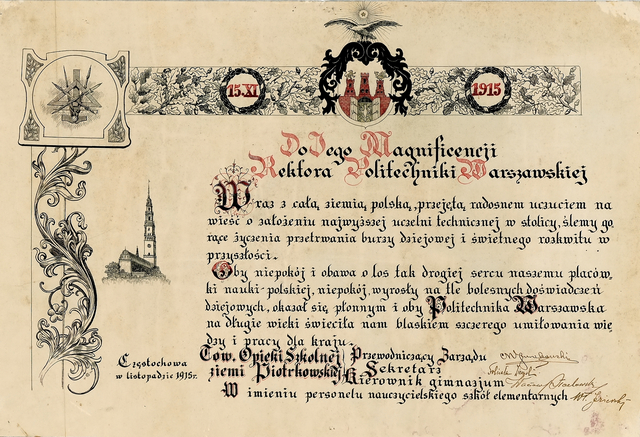 15.XI
1915
Do Jego Magnificencji
Rektora Politechniki Warszawskiej
Wraz z całą ziemią polską, przejętą radosnem uczuciem na
wieść o założeniu najwyższej uczelni technicznej w stolicy, ślemy go
rące życzenia przetrwania burzy dziejowej i świetnego rozkwitu w
przyszłości.
Oby niepokój i obawa o los tak drogiej sercu naszemu placów,
ki nauki polskiej, niepokój wyrosły na tle bolesnych doświadczeń
dziejowych, okazał się płonnym i oby Politechnika Warszawska
na długie wieki świeciła nam blaskiem szczerego umiłowania wie
dzy i pracy dla kraju.
Tow. Opieki Szkolnej Przewodniczący Zarządu
ziemi Piotrkowskiej Sekretarz
Kierownik gimnazjum
W imieniu personelu nauczycielskiego szkół elementarnych
Częstochowa
w listopadzie 1915r.